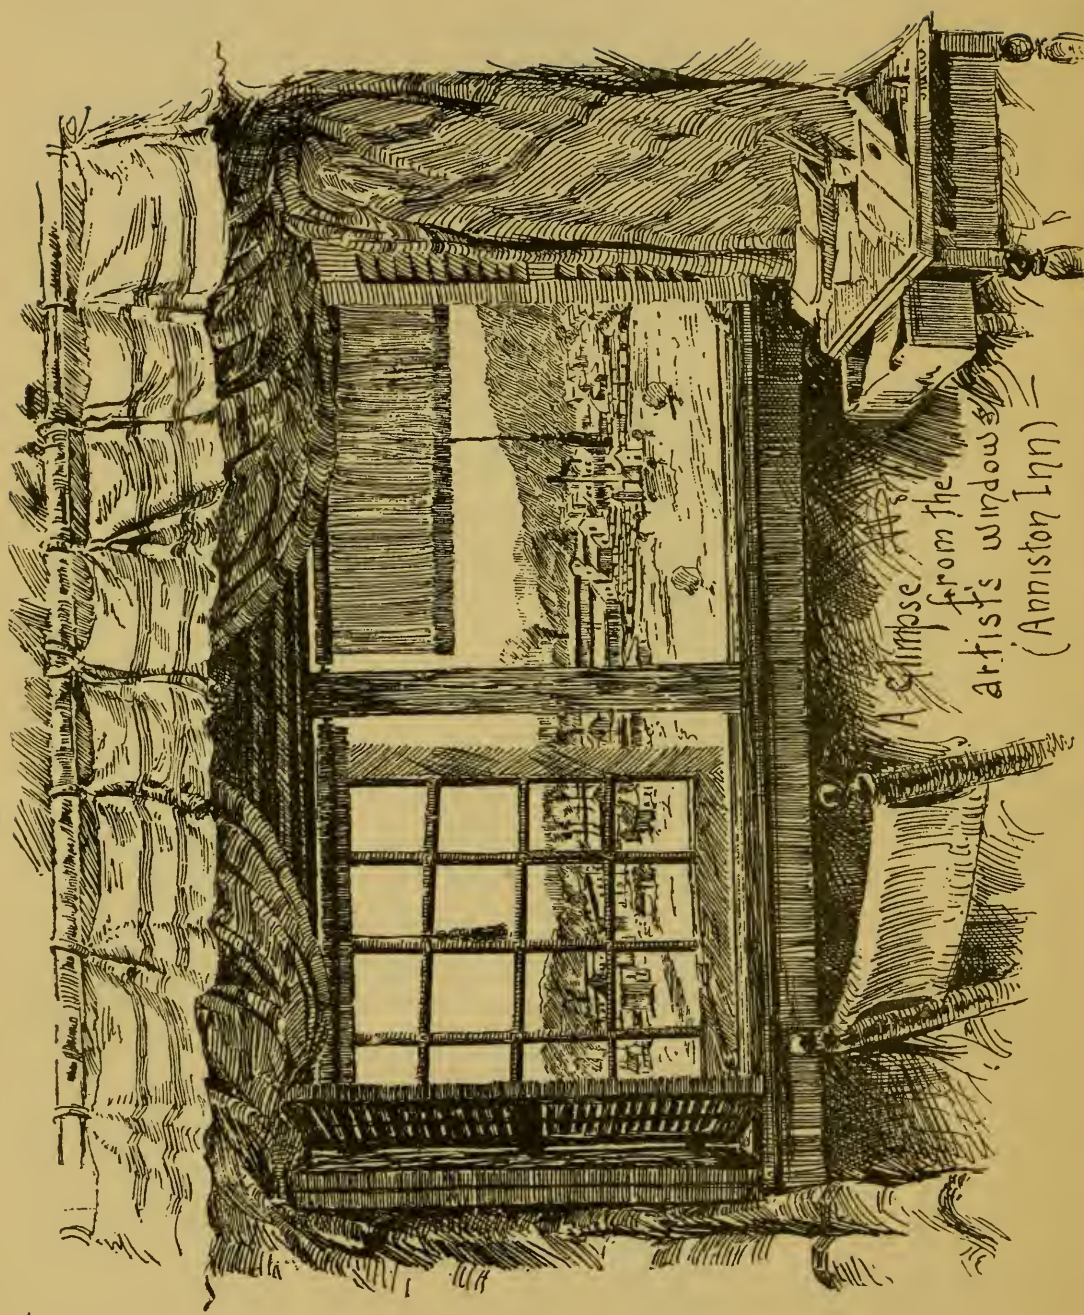 A Glimpse
from the
artist's windows
(Anniston Inn)